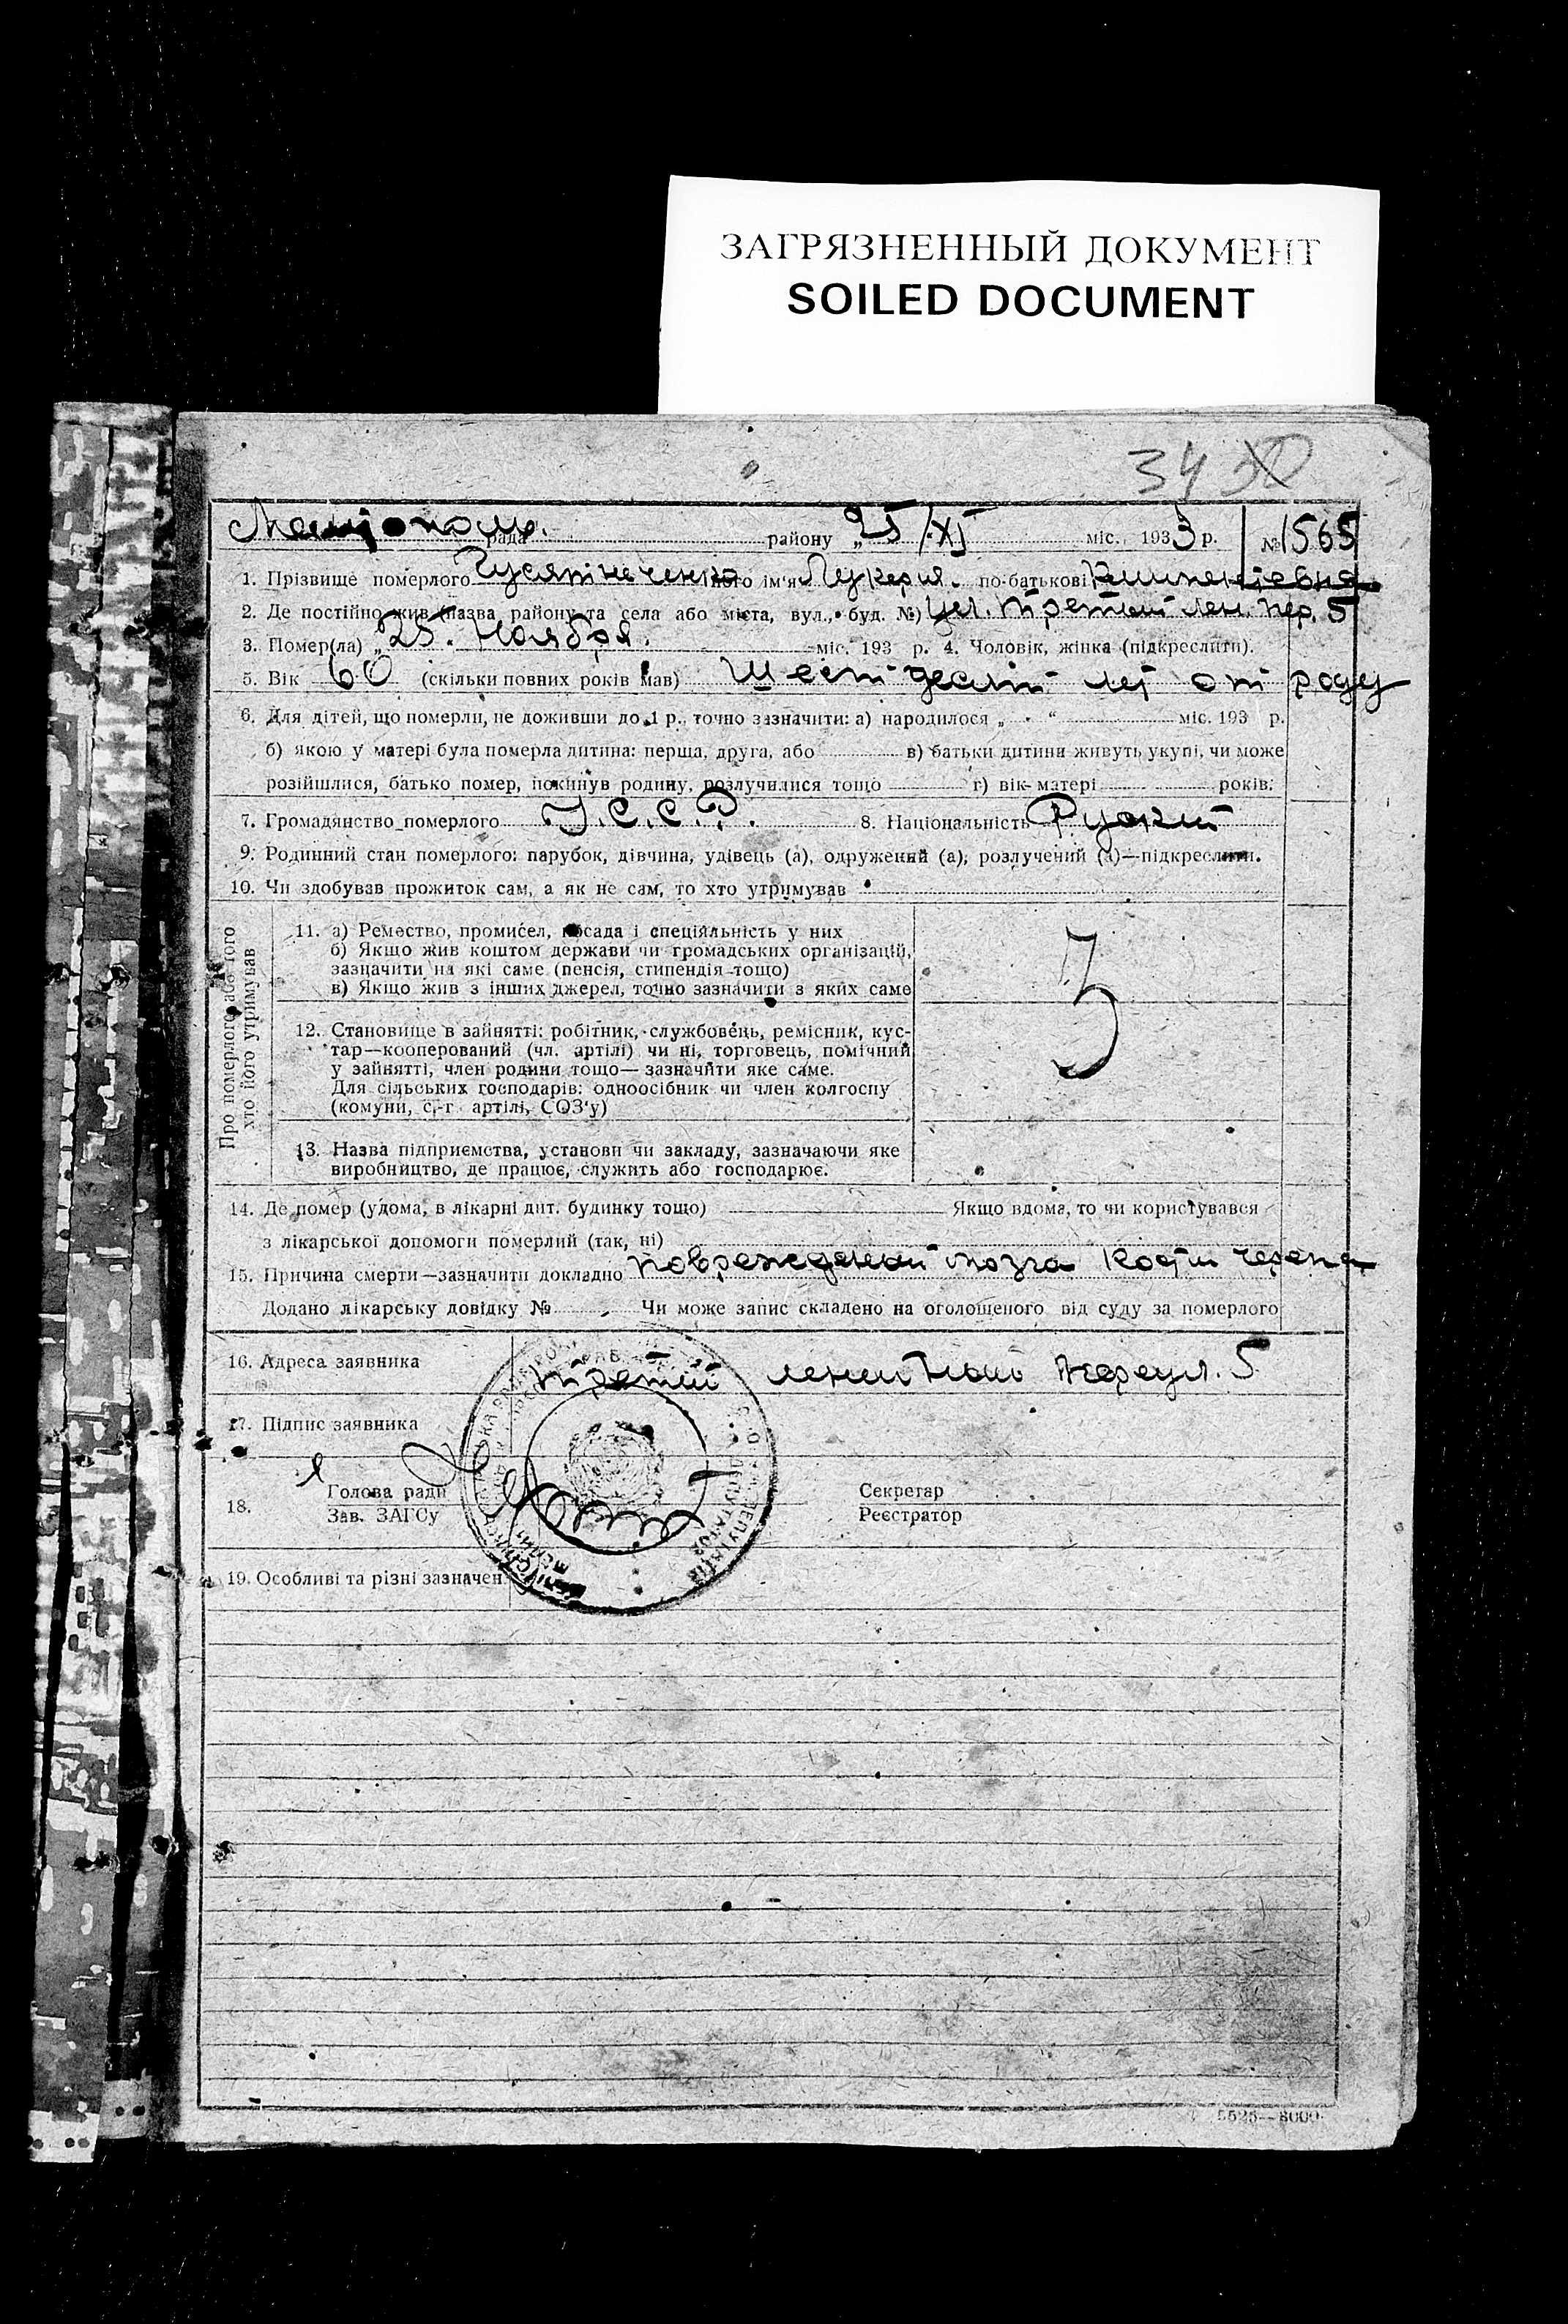 ЗАГРЯЗНЕННЫЙ ДОКУМЕНТ
SOILED DOCUMENT
рада району „25/XI міс. 1933 р. № 1565
1. Прізвище померлого його ім'я Лукерия по-батькові
2. Де постійно жив (назва району та села або міста, вул., буд. №) ул. третий лен. пер. 5
3. Помер(ла) „25. Ноября. міс. 193 р. 4. Чоловік, жінка (підкреслити).
5. Вік 60 (скільки повних років мав) Шестдесят лет от роду
6. Для дітей, що померли, не доживши до 1 р., точно зазначити: а) народилося „ “ міс. 193 р.
б) якою у матері була померла дитина: перша, друга, або в) батьки дитини живуть укупі, чи може
розійшлися, батько помер, покинув родину, розлучилися тощо г) вік матері років.
7. Громадянство померлого У.С.С.Р. 8. Національність Руский
9. Родинний стан померлого: парубок, дівчина, удівець (а), одружений (а), розлучений (а)—підкреслити.
10. Чи здобував прожиток сам, а як не сам, то хто утримував
Про померлого або того
хто його утримував
11. а) Ремество, промисел, посада і спеціяльність у них
б) Якщо жив коштом держави чи громадських організацій,
зазначити на які саме (пенсія, стипендія тощо)
в) Якщо жив з інших джерел, точно зазначити з яких саме
12. Становище в зайнятті: робітник, службовець, ремісник, кус-
тар—кооперований (чл. артілі) чи ні, торговець, помічний
у зайнятті, член родини тощо— зазначити яке саме.
Для сільських господарів: одноосібник чи член колгоспу
(комуни, с.-г. артілі, СОЗ'у)
13. Назва підприємства, установи чи закладу, зазначаючи яке
виробництво, де працює, служить або господарює.
14. Де помер (удома, в лікарні дит. будинку тощо) Якщо вдома, то чи користувався
з лікарської допомоги померлий (так, ні)
15. Причина смерти—зазначити докладно мозга кости черепа
Додано лікарську довідку № Чи може запис складено на оголошеного від суду за померлого
16. Адреса заявника третий переул. 5
17. Підпис заявника
18. Голова ради Секретар
Зав. ЗАГСу Реєстратор
19. Особливі та різні зазначен.
5525—8000